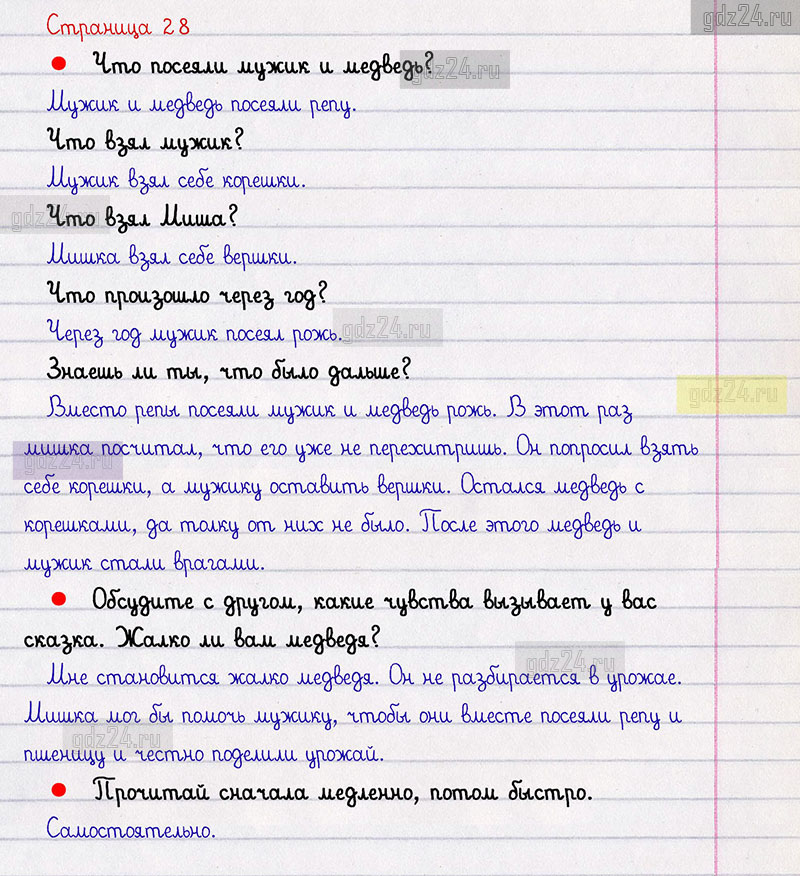 gdz24.ru
Страница 28
Что посеяли мужик и медведь?
gdz24.ru
Мужик и медведь посеяли репу.
Что взял мужик?
Мужик взял себе корешки.
gdz24.ru
Что взял Миша?
Мишка взял себе вершки.
Что произошло через год?
Через год мужик посеял рожь.
gdz24.ru
Знаешь ли ты, что было дальше?
gdz24.ru
Вместо репы посеяли мужик и медведь рожь. В этот раз
мишка посчитал, что его уже не перехитришь. Он попросил взять
gdz24.ru
себе корешки, а мужику оставить вершки. Остался медведь с
корешками, да толку от них не было. После этого медведь и
мужик стали врагами.
Обсудите с другом, какие чувства вызывает у вас
сказка. Жалко ли вам медведя?
gdz24.ru
Мне становится жалко медведя. Он не разбирается в урожае.
Мишка мог бы помочь мужику, чтобы они вместе посеяли репу и
gdz24.ru
пшеницу и честно поделили урожай.
Прочитай сначала медленно, потом быстро.
Самостоятельно.